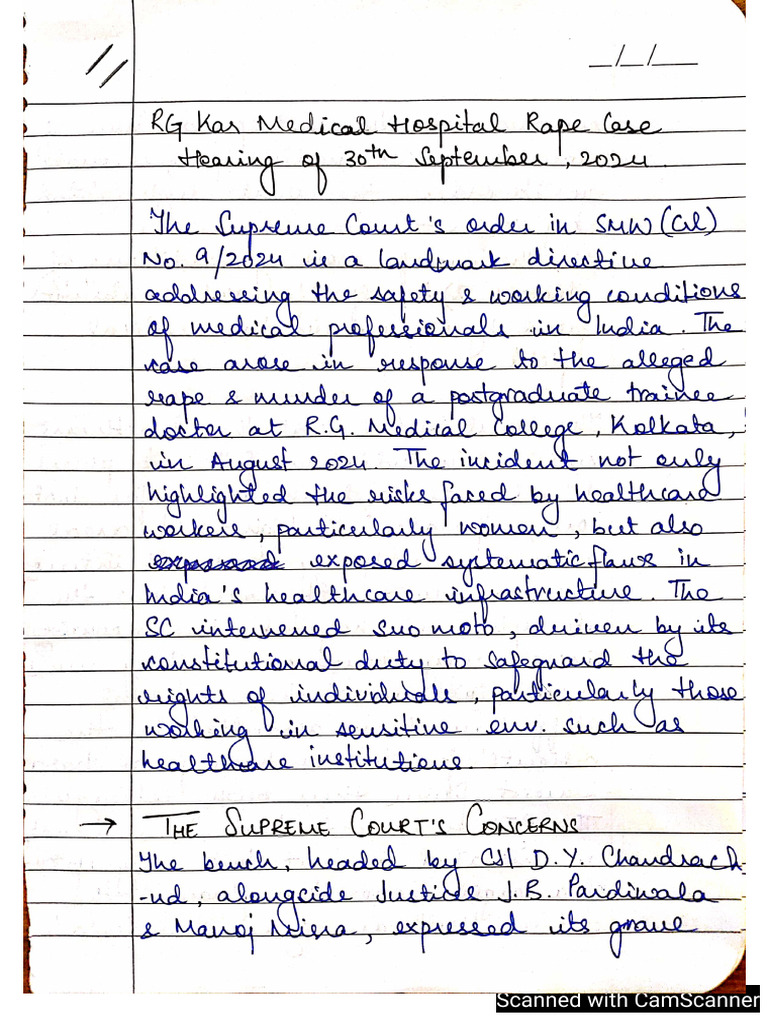 //
_/_/__
RG Kar Medical Hospital Rape Case
Hearing of 30th September, 2024.
The Supreme Court's order in SMW (Crl)
No. 9/2024 is a landmark directive
addressing the safety & working conditions
of medical professionals in India. The
case arose in response to the alleged
rape & murder of a postgraduate trainee
doctor at R.G. Medical College, Kolkata,
in August 2024. The incident not only
highlighted the risks faced by healthcare
workers, particularly women, but also
exposed systematic flaws in
India's healthcare infrastructure. The
SC intervened suo moto, driven by its
constitutional duty to safeguard the
rights of individuals, particularly those
working in sensitive env. such as
healthcare institutions.
→ THE SUPREME COURT'S CONCERNS
The bench, headed by CJI D.Y. Chandrach-
-ud, alongside Justices J.B. Pardiwala
& Manoj Misra, expressed its grave
Scanned with CamScanner